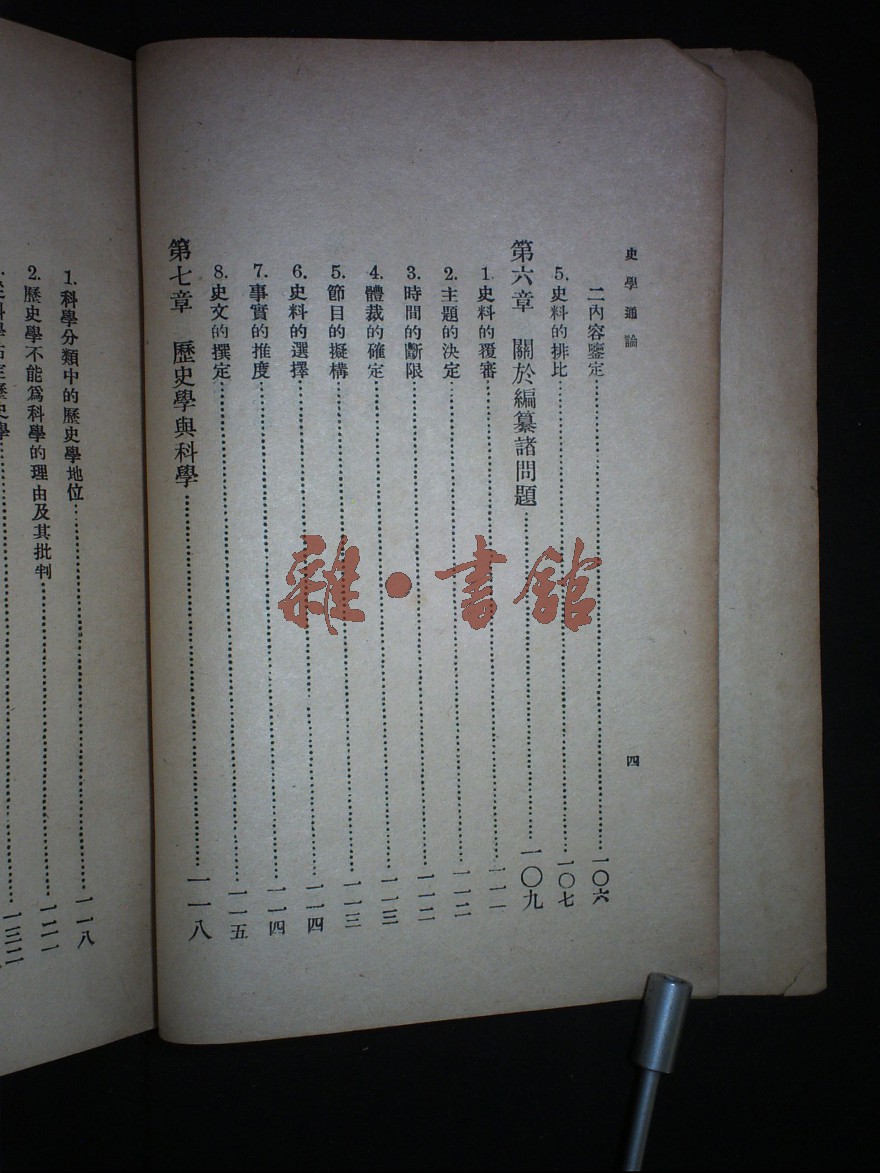 史學通論
四
二內容鑒定……一〇六
5.史料的排比……一〇七
第六章　關於編纂諸問題……一〇九
1.史料的覆審……一一一
2.主題的決定……一一二
3.時間的斷限……一一二
4.體裁的確定……一一三
5.節目的擬構……一一三
6.史料的選擇……一一四
7.事實的推度……一一四
8.史文的撰定……一一五
第七章　歷史學與科學……一一八
1.科學分類中的歷史學地位……一一八
2.歷史學不能為科學的理由及其批判……一二一
一三二
雜·書館